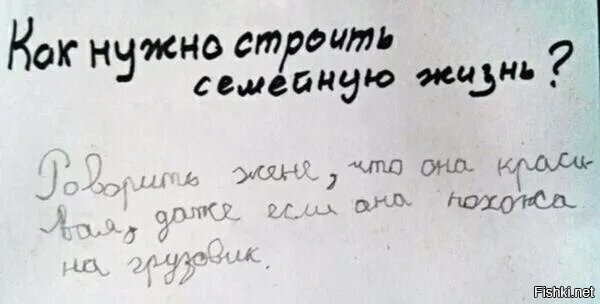 Как нужно строить
семейную жизнь?
Говорить жене, что она краси-
вая, даже если она похожа
на грузовик.
Fishki.net